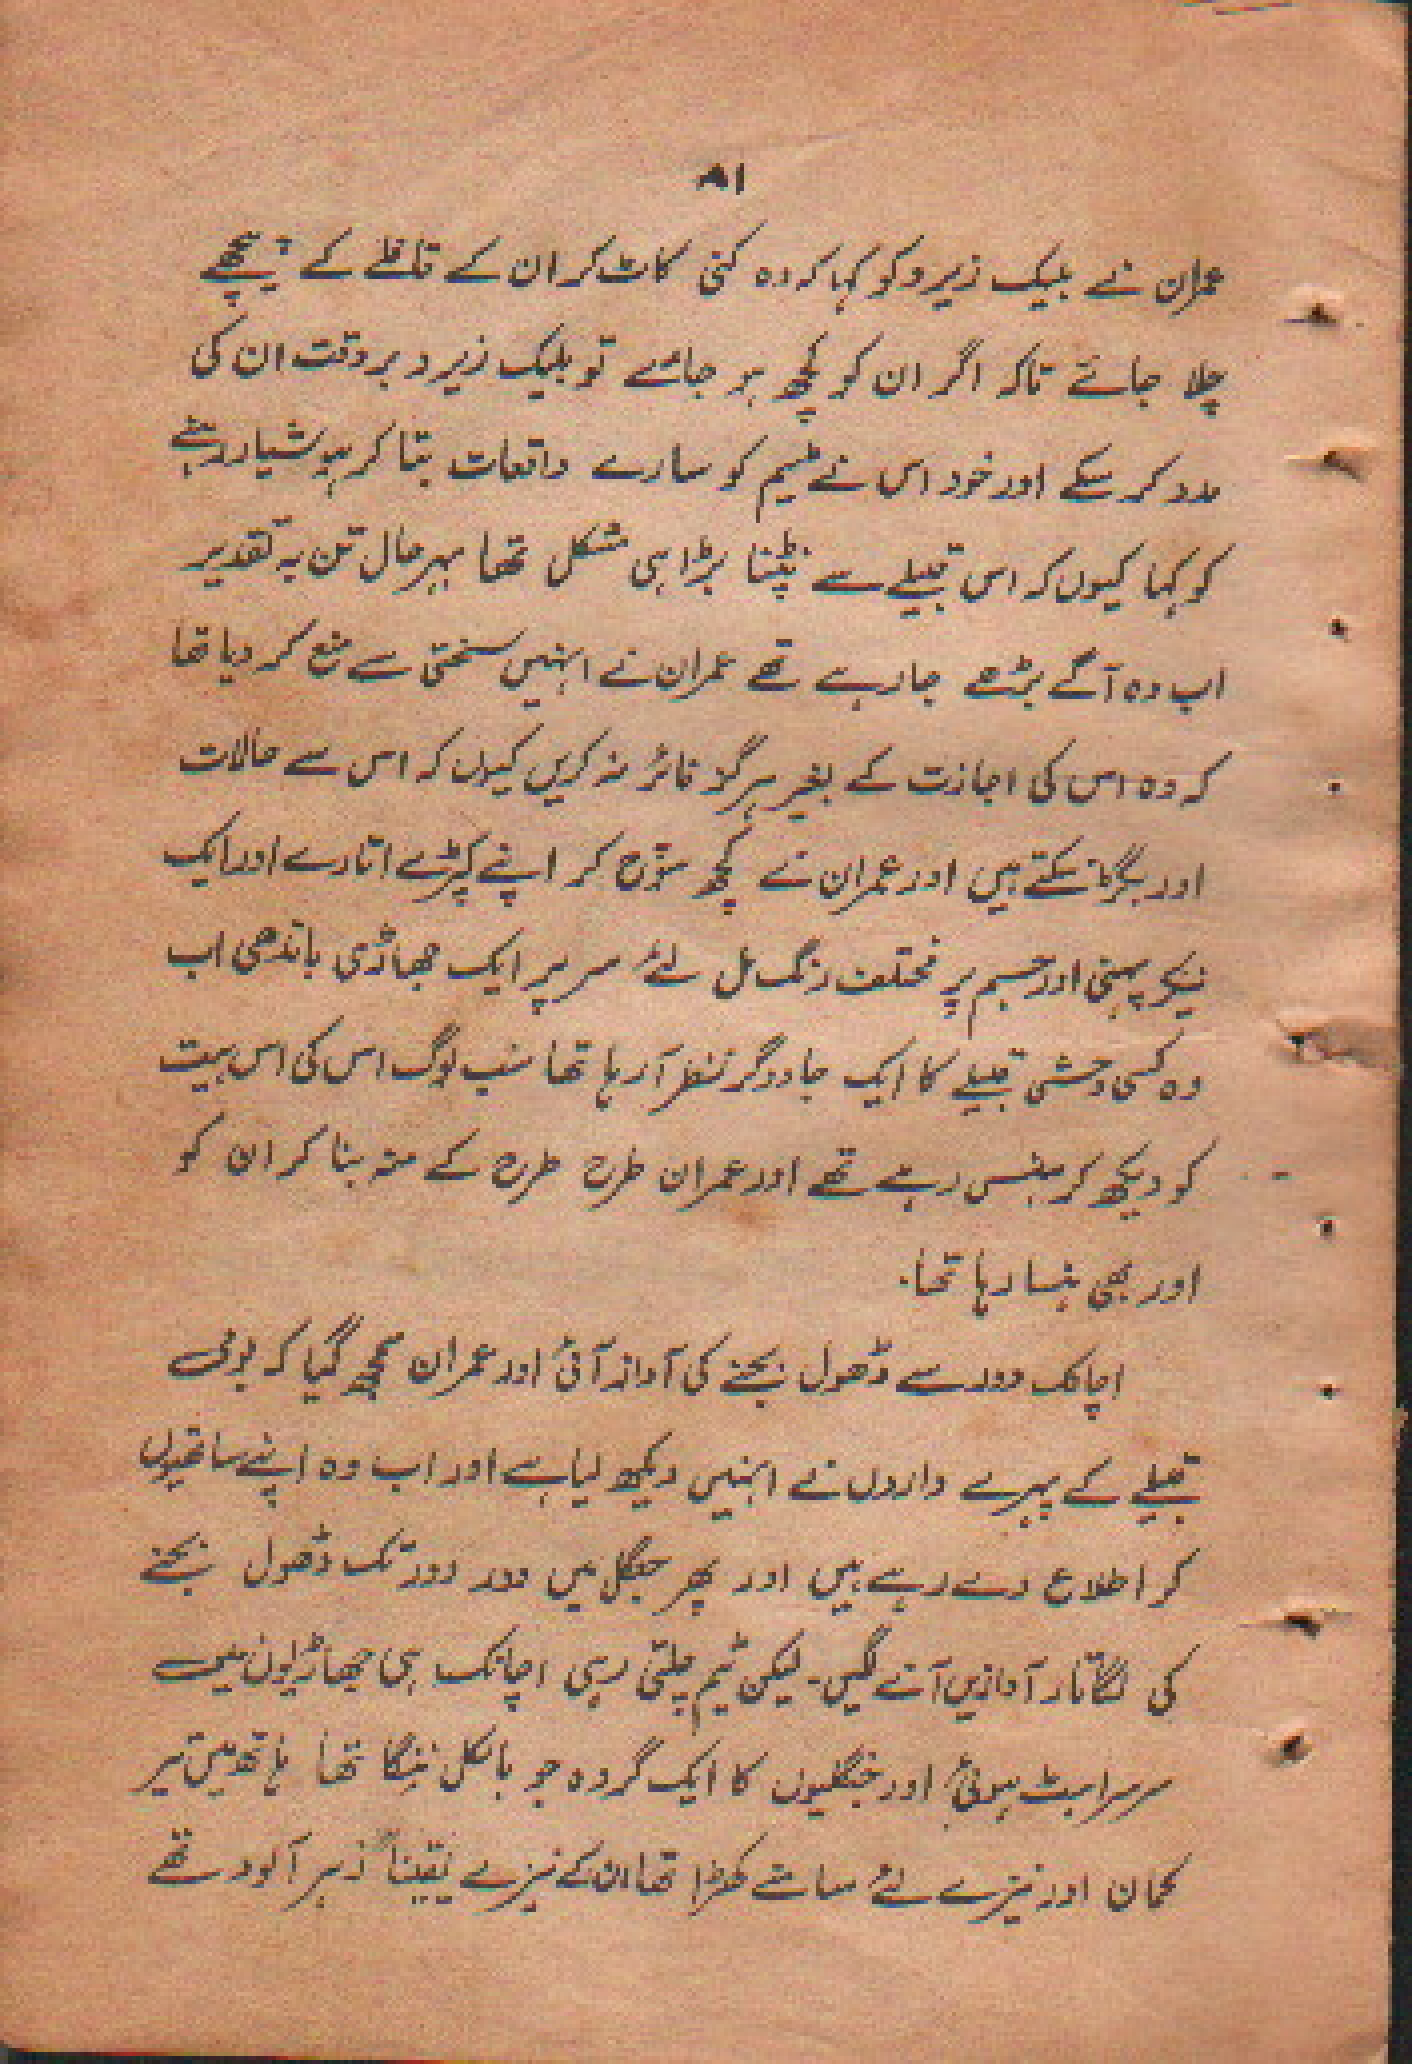 ۸۱
عمران نے بلیک زیرو کو کہا کہ وہ کنی کاٹ کر ان کے قافلے کے پیچھے
چلا جائے تاکہ اگر ان کو کچھ ہو جائے تو بلیک زیرو بر وقت ان کی
مدد کر سکے اور خود اس نے ٹیم کو سارے واقعات بتا کر ہوشیار رہنے
کو کہا کیوں کہ اس قبیلے سے نپٹنا بڑا ہی مشکل تھا بہرحال تن بہ تقدیر
اب وہ آگے بڑھے جا رہے تھے عمران نے انہیں سختی سے منع کر دیا تھا
کہ وہ اس کی اجازت کے بغیر ہرگز فائر نہ کریں کیوں کہ اس سے حالات
اور بگڑ سکتے ہیں اور عمران نے کچھ سوچ کر اپنے کپڑے اتارے اور ایک
نیکر پہنی اور جسم پر مختلف رنگ مل لئے سر پر ایک جھاڑی باندھی اب
وہ کسی وحشی قبیلے کا ایک جادوگر نظر آ رہا تھا سب لوگ اس کی اس ہیت
کو دیکھ کر ہنس رہے تھے اور عمران طرح طرح کے منہ بنا کر ان کو
اور بھی ہنسا رہا تھا۔
اچانک دور سے ڈھول بجنے کی آواز آئی اور عمران سمجھ گیا کہ
قبیلے کے پہرے داروں نے انہیں دیکھ لیا ہے اور اب وہ اپنے ساتھیوں
کر اطلاع دے رہے ہیں اور پھر جنگل میں دور دور تک ڈھول بجنے
کی لگاتار آوازیں آنے لگیں۔ لیکن ٹیم چلتی رہی اچانک ہی جھاڑیوں میں
سرسراہٹ ہوئی اور جنگلیوں کا ایک گروہ جو بالکل ننگا تھا ہاتھ میں تیر
کمان اور نیزے لئے سامنے کھڑا تھا ان کے نیزے یقیناً زہر آلود تھے